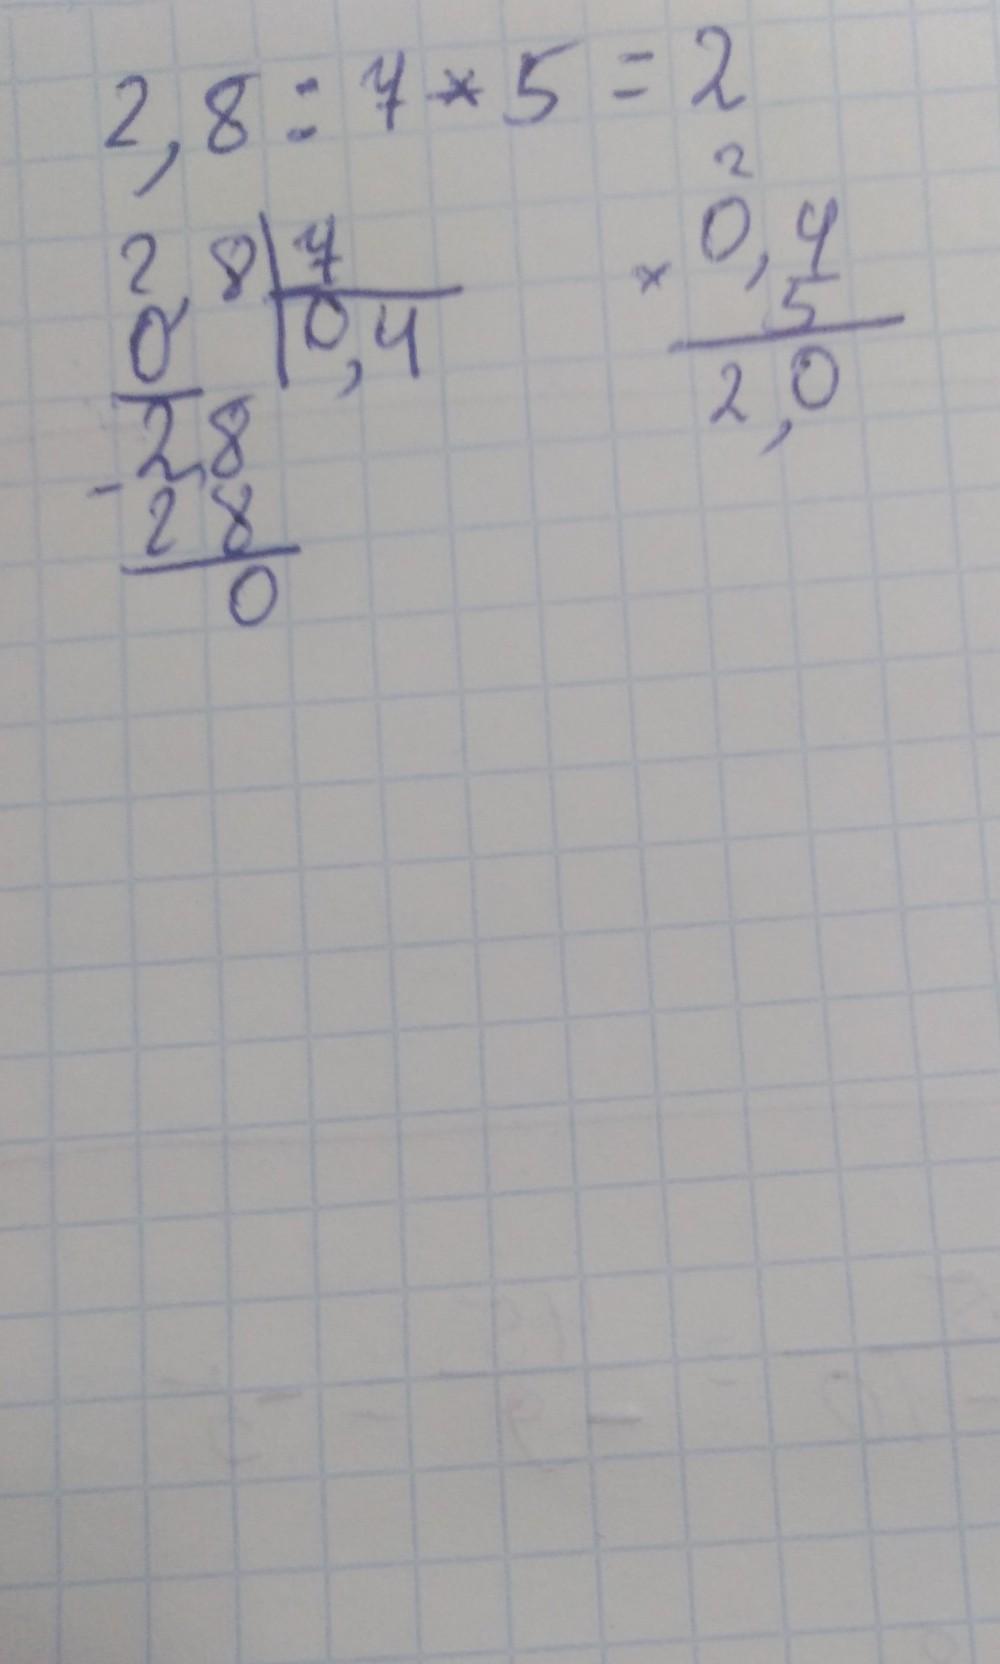 2,8 : 7 * 5 = 2
2,8 | 7
0 | 0,4
28
- 28
0
2
0,4
× 5
2,0